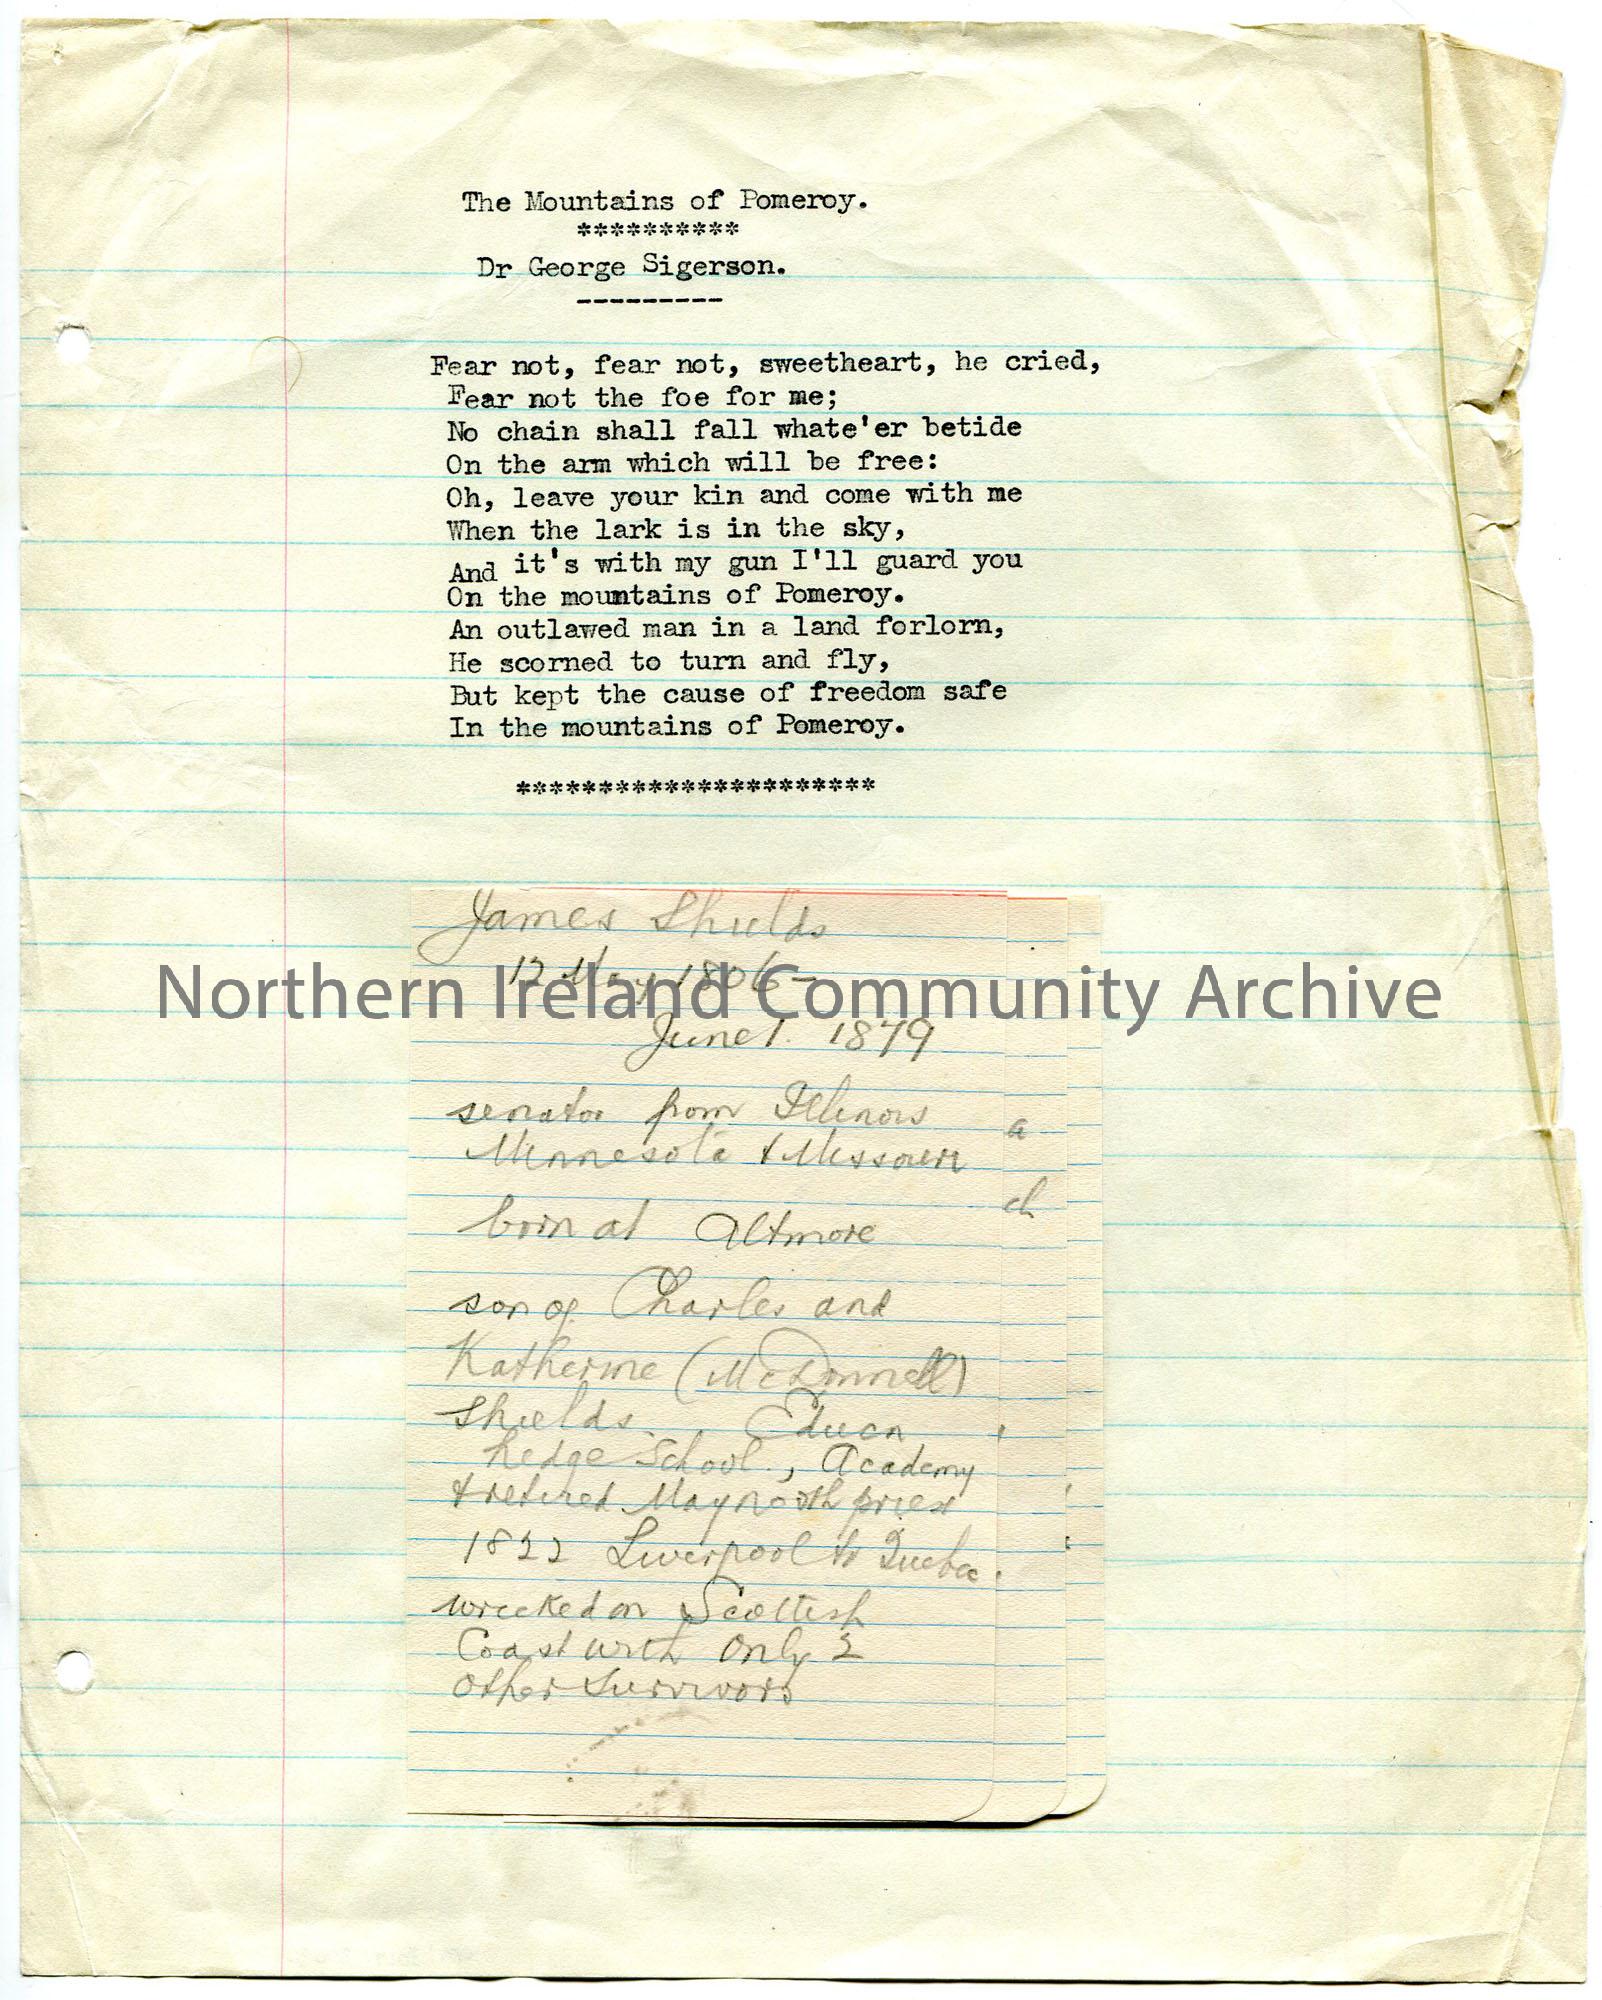 The Mountains of Pomeroy.
**********
Dr George Sigerson.
---------
Fear not, fear not, sweetheart, he cried,
Fear not the foe for me;
No chain shall fall whate'er betide
On the arm which will be free:
Oh, leave your kin and come with me
When the lark is in the sky,
And it's with my gun I'll guard you
On the mountains of Pomeroy.
An outlawed man in a land forlorn,
He scorned to turn and fly,
But kept the cause of freedom safe
In the mountains of Pomeroy.
**********************
James Shields
12 May 1806 -
Northern Ireland Community Archive
June 1. 1879
senator from Illinois
a
Minnesota & Missouri
ch
born at Altmore
son of Charles and
Katherine (McDonnell)
Shields. Educn
hedge School, Academy
& retired Maynooth priest
1822 Liverpool to Quebec.
wrecked on Scottish
Coast with only 2
other survivors